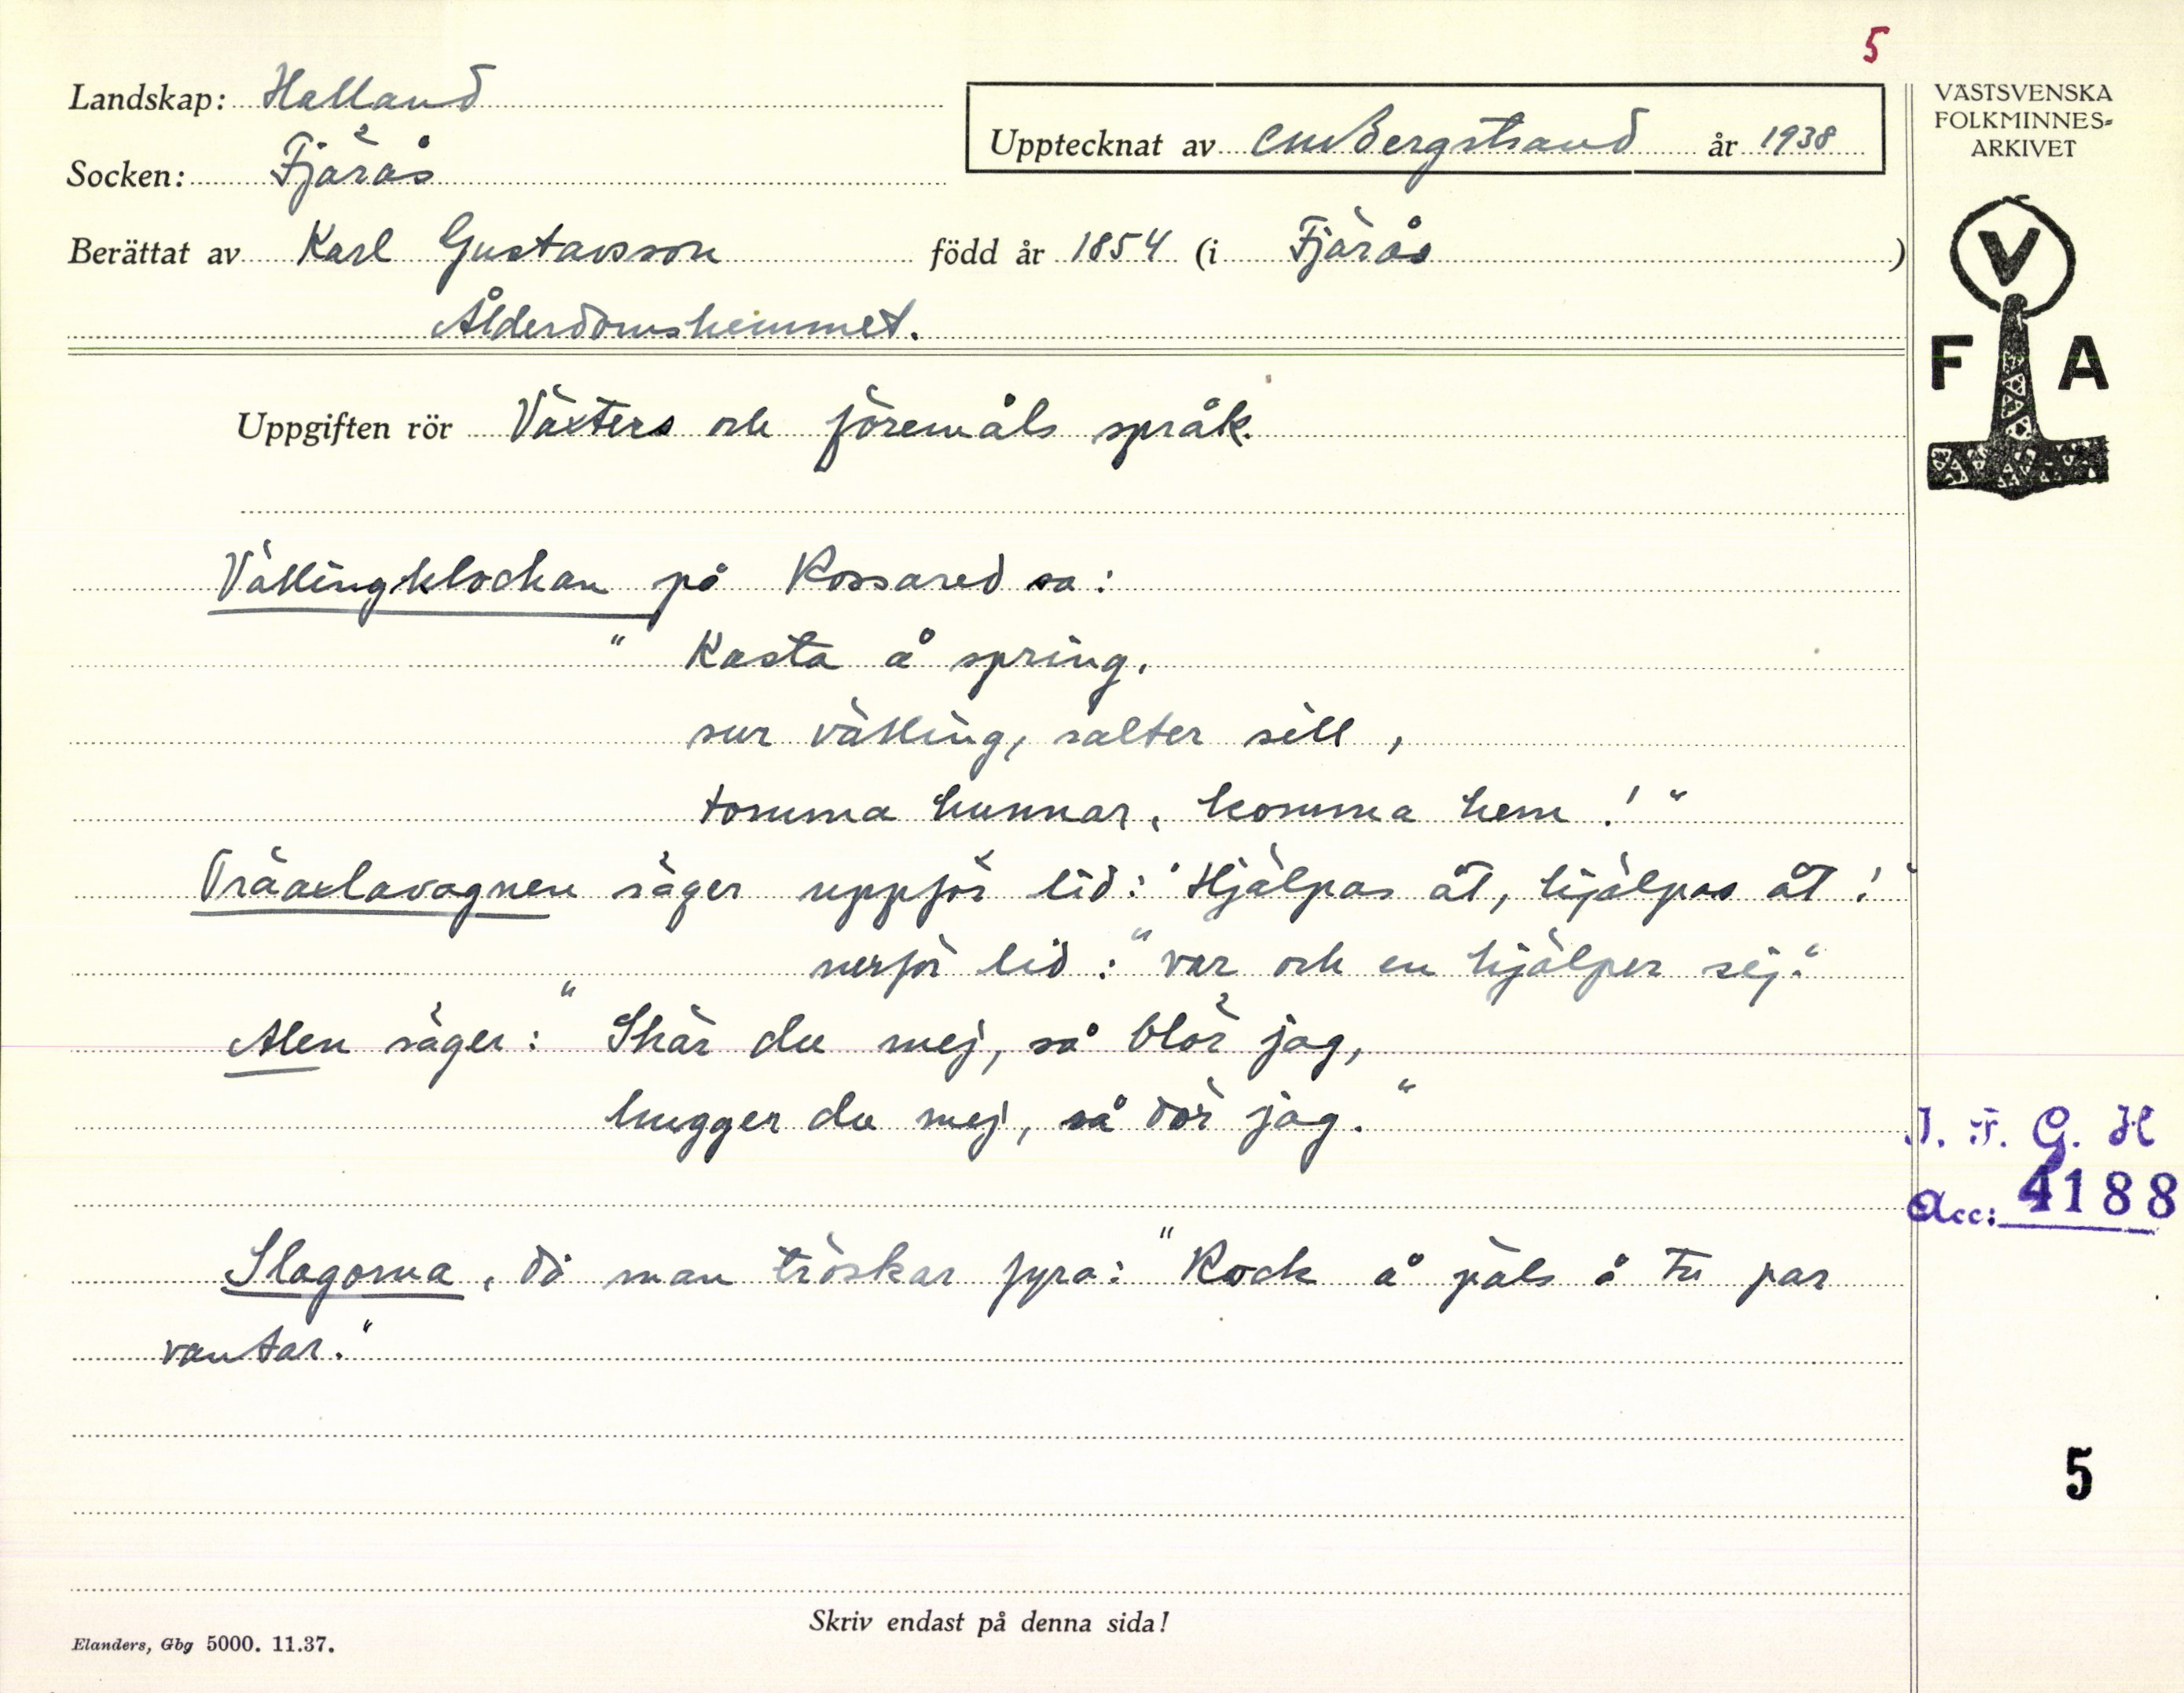 5
Landskap: Halland
VÄSTSVENSKA
FOLKMINNES-
ARKIVET
Upptecknat av CMBergstrand år 1938
Socken: Fjärås
Berättat av Karl Gustavsson född år 1854 (i Fjärås)
Ålderdomshemmet.
V
F A
Uppgiften rör Växters och föremåls språk.
Vällingklockan på Rossared sa:
" Kasta å spring,
sur välling, salter sill,
tomma hunnar, komma hem!"
Träaxlavagnen säger uppför lid: "Hjälpas åt, hjälpas åt!"
nerför lid: "var och en hjälper sej."
Alen säger: "Skär du mej, så blör jag,
hugger du mej, så dör jag."
I. F. G. H
Acc: 4188
Slagorna, då man tröskar fyra: "Rock å päls å tu par
vantar."
5
Skriv endast på denna sida!
Elanders, Gbg 5000. 11.37.